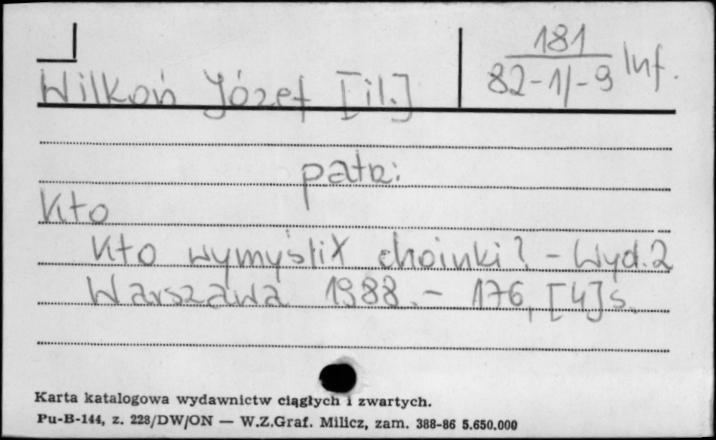 181
82-11-9 Inf.
Wilkoń Józef [il.]
patrz:
Kto
Kto wymyślił choinki? - Wyd. 2
Warszawa 1988. - 176, [4] s.
Karta katalogowa wydawnictw ciągłych i zwartych.
Pu-B-144, z. 228/DW/ON — W.Z.Graf. Milicz, zam. 388-86 5.650.000